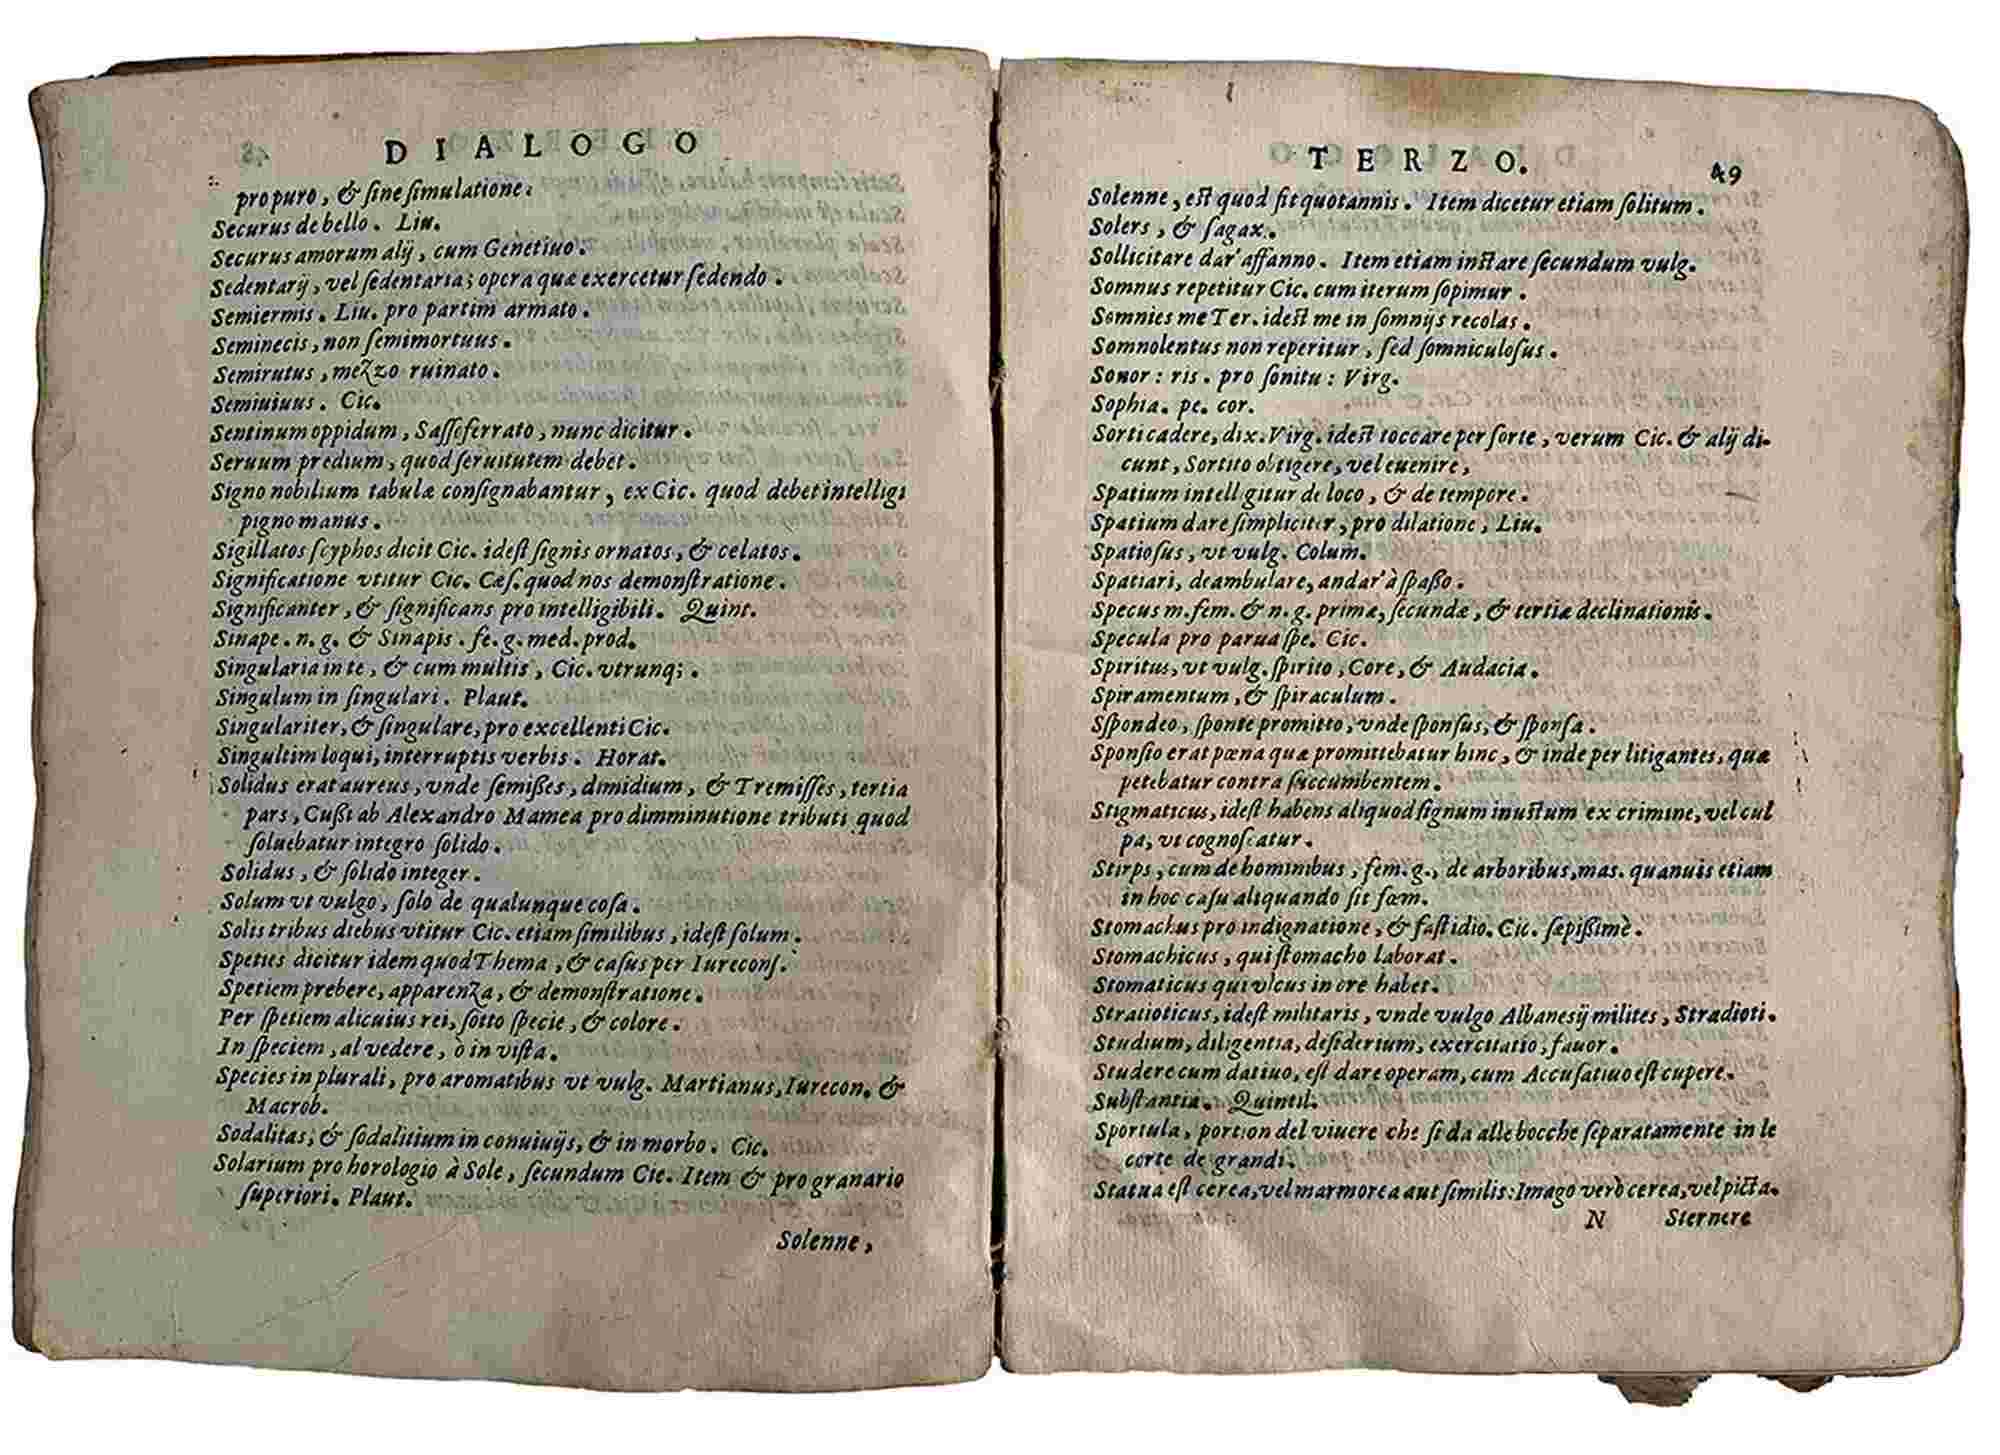 DIALOGO
pro puro, & ſine ſimulatione.
Securus de bello. Liu.
Securus amorum alij, cum Genetiuo.
Sedentarij, vel ſedentaria; opera quæ exercetur ſedendo.
Semiermis. Liu. pro partim armato.
Seminecis, non ſemimortuus.
Semirutus, mezzo ruinato.
Semiuiuus. Cic.
Sentinum oppidum, Saſſoferrato, nunc dicitur.
Seruum predium, quod ſeruitutem debet.
Signo nobilium tabulæ conſignabantur, ex Cic. quod debet intelligi
pigno manus.
Sigillatos ſcyphos dicit Cic. ideſt ſignis ornatos, & celatos.
Significatione vtitur Cic. Cæſ. quod nos demonſtratione.
Significanter, & ſignificans pro intelligibili. Quint.
Sinape. n. g. & Sinapis. fe. g. med. prod.
Singularia in te, & cum multis, Cic. vtrunq;.
Singulum in ſingulari. Plaut.
Singulariter, & ſingulare, pro excellenti Cic.
Singultim loqui, interruptis verbis. Horat.
Solidus erat aureus, vnde ſemißes, dimidium, & Tremiſſes, tertia
pars, Cußi ab Alexandro Mamea pro dimminutione tributi quod
ſoluebatur integro ſolido.
Solidus, & ſolido integer.
Solum vt vulgo, ſolo de qualunque coſa.
Solis tribus diebus vtitur Cic. etiam ſimilibus, ideſt ſolum.
Speties dicitur idem quod Thema, & caſus per Iureconſ.
Spetiem prebere, apparenza, & demonſtratione.
Per ſpetiem alicuius rei, ſotto ſpecie, & colore.
In ſpeciem, al vedere, ò in viſta.
Species in plurali, pro aromatibus vt vulg. Martianus, Iurecon. &
Macrob.
Sodalitas, & ſodalitium in conuiuijs, & in morbo. Cic.
Solarium pro horologio à Sole, ſecundum Cic. Item & pro granario
ſuperiori. Plaut.
Solenne,
TERZO. 49
Solenne, eſt quod fit quotannis. Item dicetur etiam ſolitum.
Solers, & ſagax.
Sollicitare dar' affanno. Item etiam inſtare ſecundum vulg.
Somnus repetitur Cic. cum iterum ſopimur.
Somnies me Ter. ideſt me in ſomnijs recolas.
Somnolentus non reperitur, ſed ſomniculoſus.
Sonor: ris. pro ſonitu: Virg.
Sophia. pe. cor.
Sorti cadere, dix. Virg. ideſt toccare per ſorte, verum Cic. & alij di-
cunt, Sortito obtigere, vel euenire,
Spatium intelligitur de loco, & de tempore.
Spatium dare ſimpliciter, pro dilatione, Liu.
Spatioſus, vt vulg. Colum.
Spatiari, deambulare, andar' à ſpaßo.
Specus m. fem. & n. g. primæ, ſecundæ, & tertiæ declinationis.
Specula pro parua ſpe. Cic.
Spiritus, vt vulg. ſpirito, Core, & Audacia.
Spiramentum, & ſpiraculum.
Sſpondeo, ſponte promitto, vnde ſponſus, & ſponſa.
Sponſio erat pœna quæ promittebatur hinc, & inde per litigantes, quæ
petebatur contra ſuccumbentem.
Stigmaticus, ideſt habens aliquod ſignum inuſtum ex crimine, vel cul
pa, vt cognoſcatur.
Stirps, cum de hominibus, fem. g., de arboribus, mas. quanuis etiam
in hoc caſu aliquando ſit fœm.
Stomachus pro indignatione, & faſtidio. Cic. ſæpißimè.
Stomachicus, qui ſtomacho laborat.
Stomaticus qui vlcus in ore habet.
Stratioticus, ideſt militaris, vnde vulgo Albanesij milites, Stradioti.
Studium, diligentia, deſiderium, exercitatio, fauor.
Studere cum datiuo, eſt dare operam, cum Accuſatiuo eſt cupere.
Subſtantia. Quintil.
Sportula, portion del viuere che ſi da alle bocche ſeparatamente in le
corte de grandi.
Statua eſt cerea, vel marmorea aut ſimilis: Imago verò cerea, vel picta.
N Sternere